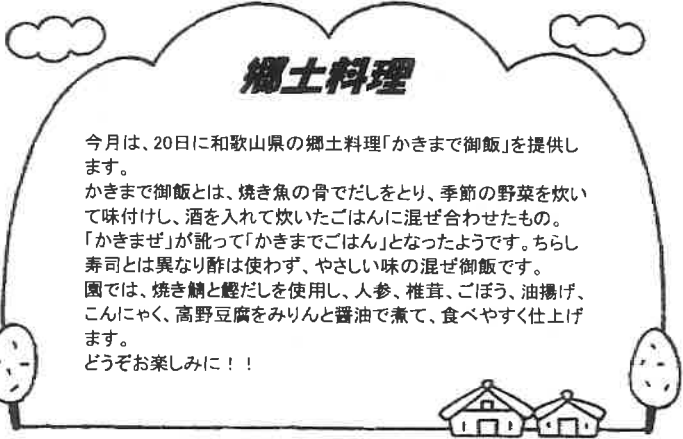 郷土料理
今月は、20日に和歌山県の郷土料理「かきまで御飯」を提供し
ます。
かきまで御飯とは、焼き魚の骨でだしをとり、季節の野菜を炊い
て味付けし、酒を入れて炊いたごはんに混ぜ合わせたもの。
「かきまぜ」が訛って「かきまでごはん」となったようです。ちらし
寿司とは異なり酢は使わず、やさしい味の混ぜ御飯です。
園では、焼き鯖と鰹だしを使用し、人参、椎茸、ごぼう、油揚げ、
こんにゃく、高野豆腐をみりんと醤油で煮て、食べやすく仕上げ
ます。
どうぞお楽しみに！！